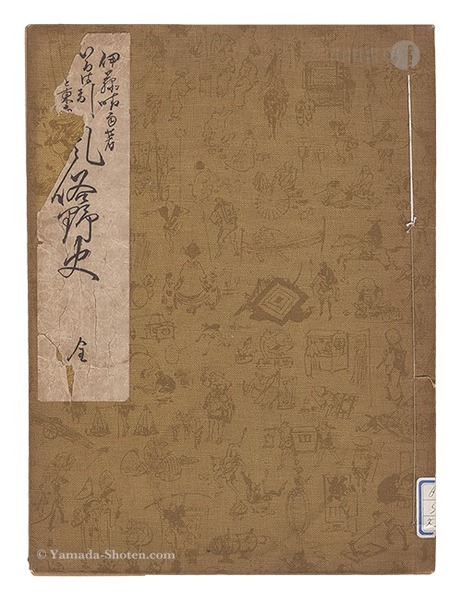 伊藤晴雨著
いろは引
風俗野史
全
© Yamada-Shoten.com